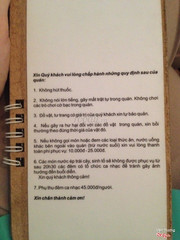 Xin Quý khách vui lòng chấp hành những quy định sau của quán:
1. Không hút thuốc.
2. Không nói lớn tiếng, gây mất trật tự trong quán. Không chơi các trò chơi có bạc trong quán.
3. Đồ vật, tư trang có giá trị của quý khách xin tự bảo quản.
4. Nếu gây ra hư hại đối với các đồ vật trong quán, xin bồi thường theo đúng giá của vật đó.
5. Nếu quý khách gọi món hoặc đem các loại thức ăn, nước uống khác bên ngoài vào quán (trừ nước suối) xin vui lòng thanh toán phí phục vụ: 10.000đ - 20.000đ.
6. Các món nước ép trái cây, sinh tố sẽ không được phục vụ từ sau 20h30 các đêm có tổ chức ca nhạc để tránh gây ảnh hưởng đến buổi diễn.
Xin quý khách thông cảm!
7. Phụ thu đêm ca nhạc 45.000đ/người.
Xin chân thành cảm ơn!